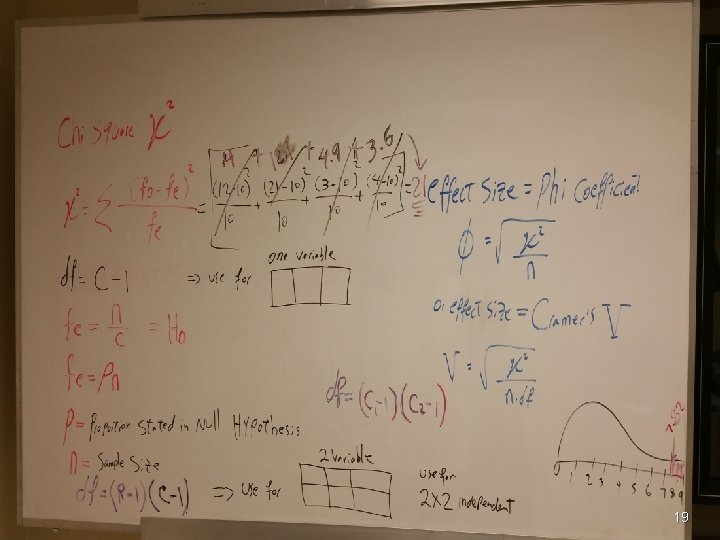 Chi square χ²
χ² = Σ (fo-fe)² / fe = [(12-10)²/10 + (21-10)²/10 + (3-10)²/10 + (4-10)²/10] = 21
+ + 4.9 + 3.6
effect size = Phi Coefficient
ϕ = √ χ² / n
df = C-1 => use for
one variable
fe = n/c = Ho
or effect size = Cramer's V
fe = Pn
V = √ χ² / n.df
df = (C₁-1)(C₂-1)
P = Proportion stated in Null Hypothesis
n = Sample Size
2 variable
df = (R-1)(C-1) => use for
use for
2x2 independent
0 1 2 3 4 5 6 7 8 9
19